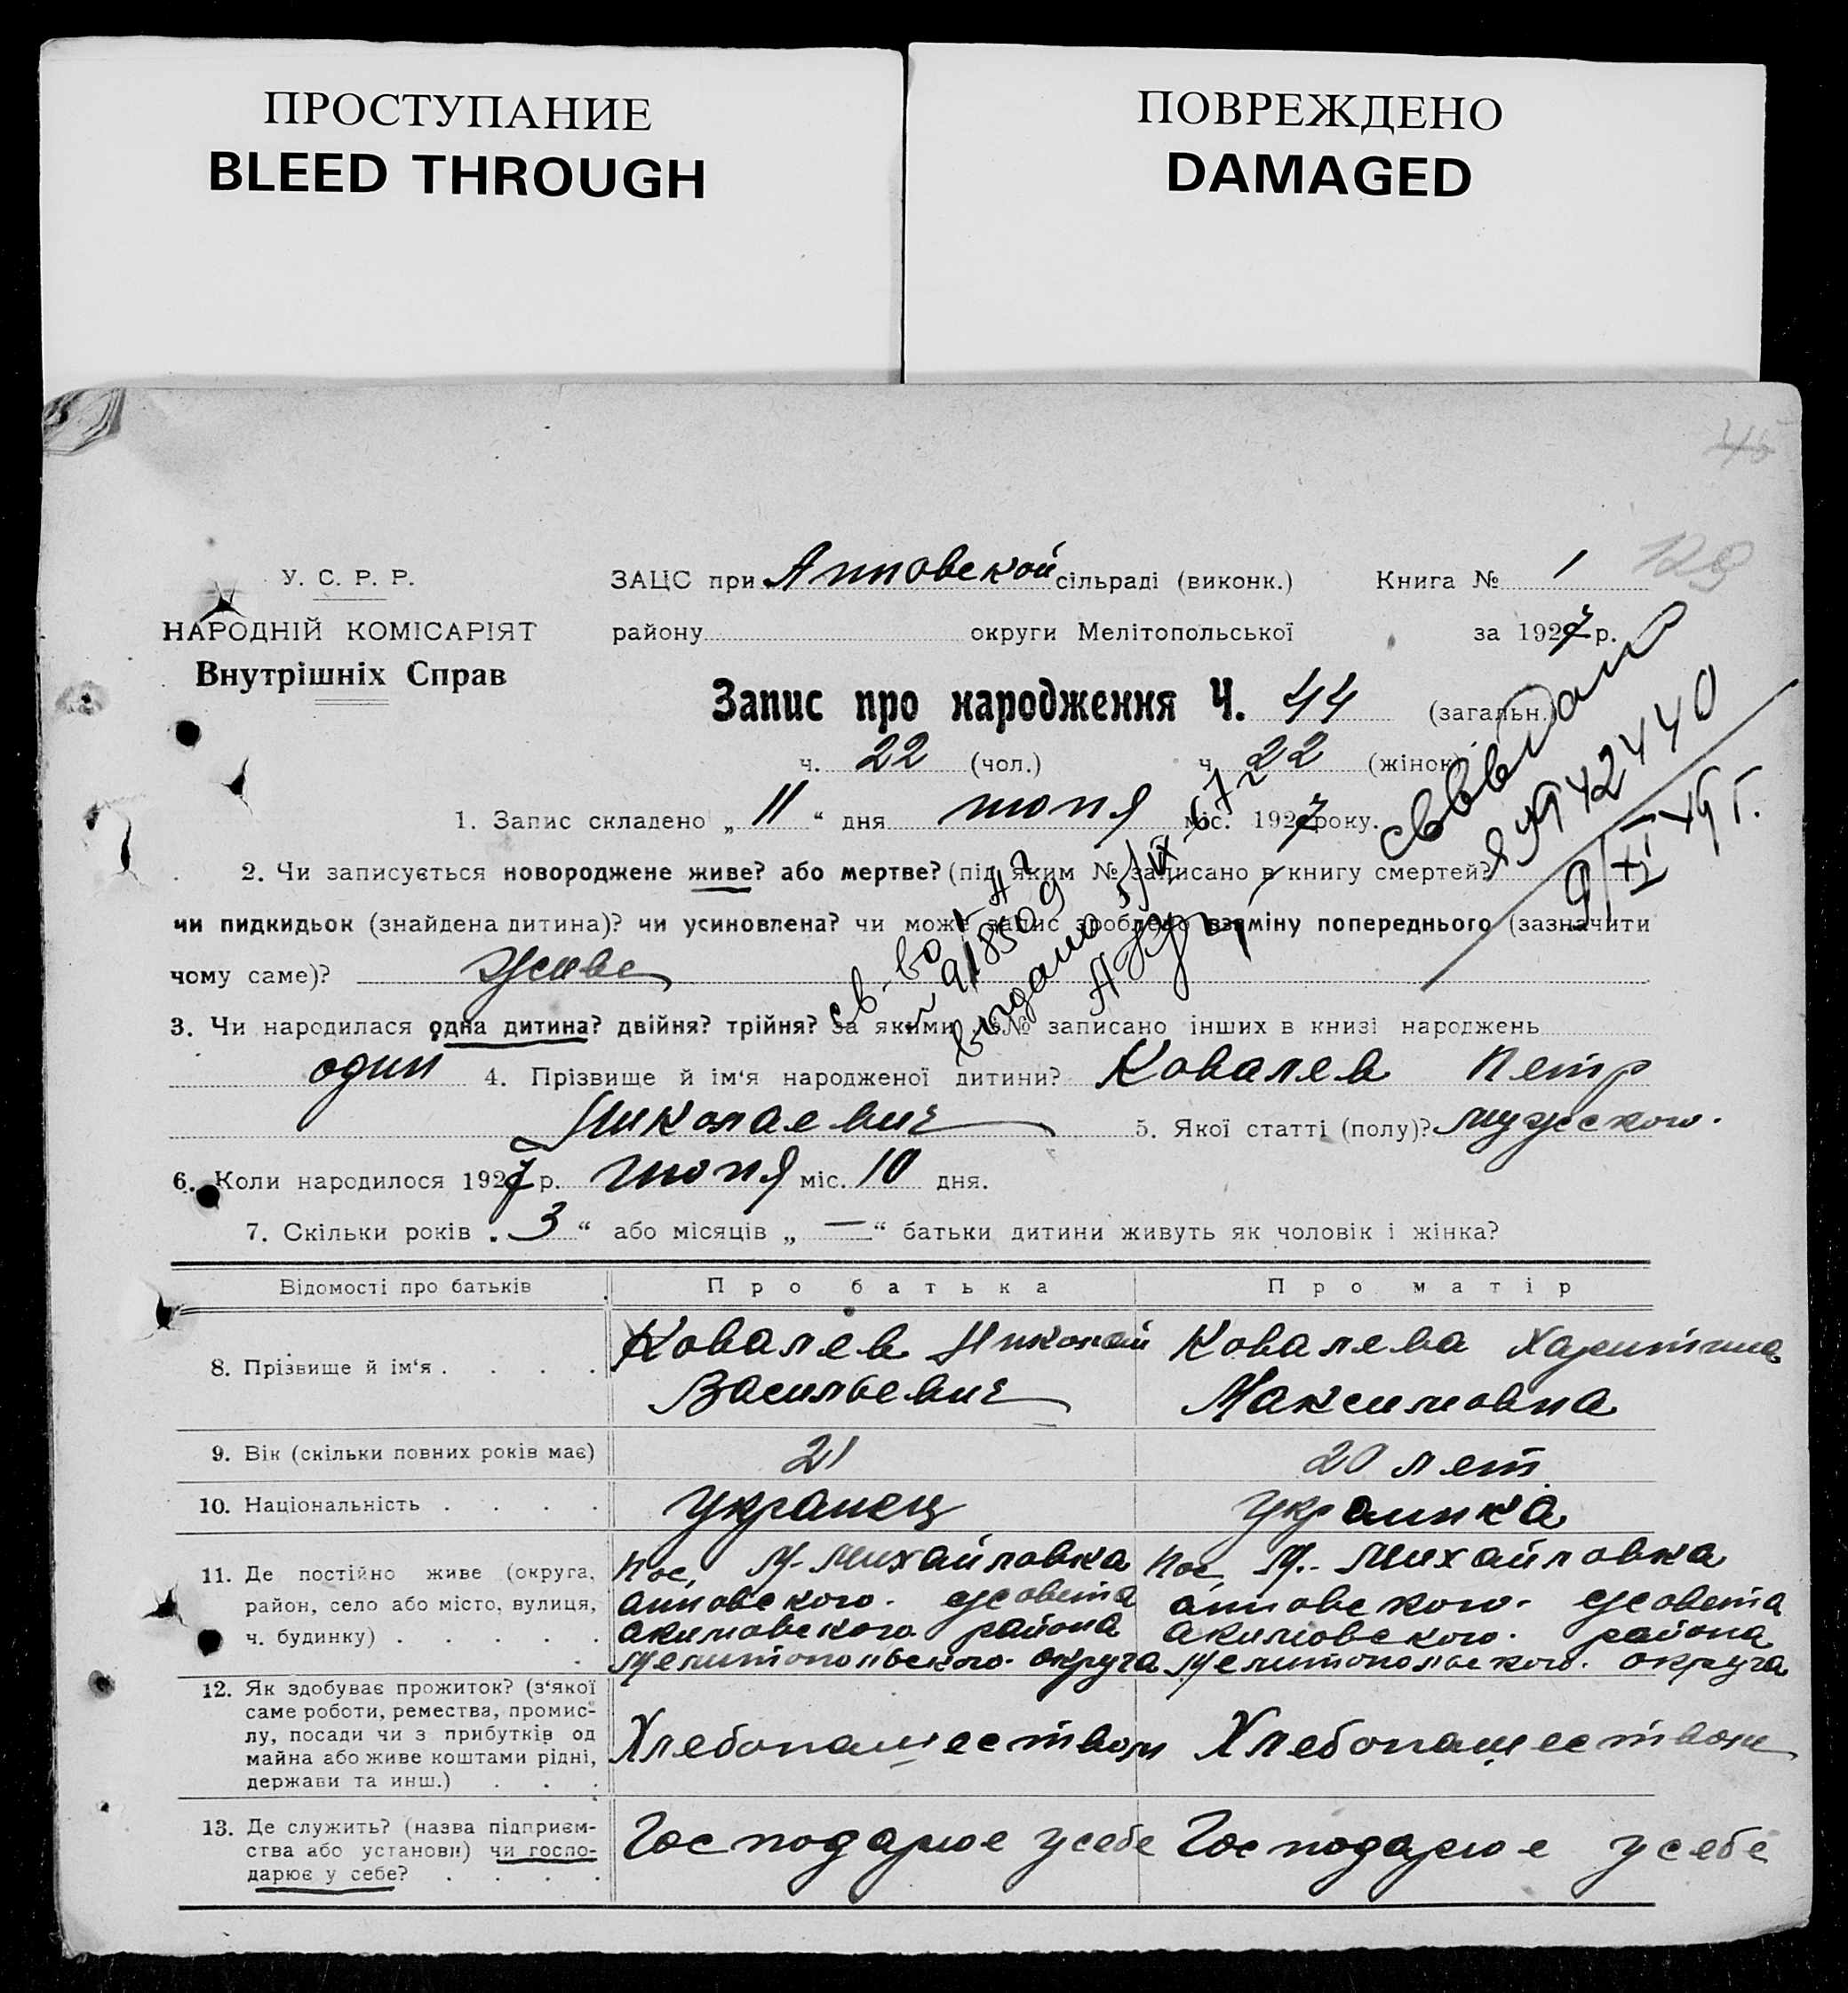 ПРОСТУПАНИЕ
BLEED THROUGH
ПОВРЕЖДЕНО
DAMAGED
45
129
У. С. Р. Р.
НАРОДНІЙ КОМІСАРІЯТ
Внутрішніх Справ
ЗАЦС при Анновской сільраді (виконк.) Книга № 1
району округи Мелітопольської за 1927 р.
Запис про народження Ч. 44 (загальн.)
ч. 22 (чол.) ч. 22 (жінок)
1. Запис складено „ 11 “ дня июня міс. 1927 року.
2. Чи записується новороджене живе? або мертве? (під яким № записано в книгу смертей?
чи пидкидьок (знайдена дитина)? чи усиновлена? чи може запис зроблено взаміну попереднього (зазначити
чому саме)? Живе
3. Чи народилася одна дитина? двійня? трійня? За якими №№ записано інших в книзі народжень
один 4. Прізвище й ім‘я народженої дитини? Ковалев Петр
Николаевич 5. Якої статті (полу)? мужского.
6. Коли народилося 1927 р. июня міс. 10 дня.
7. Скільки років „ 3 “ або місяців „ — “ батьки дитини живуть як чоловік і жінка?
Відомості про батьків Про батька Про матір
8. Прізвище й ім‘я . . . . Ковалев Николай Ковалева Харитина
Васильевич Максимовна
9. Вік (скільки повних років має) 21 20 лет
10. Національність . . . . Украинец Украинка
11. Де постійно живе (округа, пос. М-Михайловка пос. М.-Михайловка
район, село або місто, вулиця, анновского. с/совета анновского. с/совета
ч. будинку) . . . . . акимовского района акимовского. района
Мелитопольского. округа Мелитопольского. округа
12. Як здобуває прожиток? (з‘якої
саме роботи, ремества, промис-
лу, посади чи з прибутків од
майна або живе коштами рідні, Хлебопашеством Хлебопашеством
держави та инш.) . . .
13. Де служить? (назва підприєм-
ства або установи) чи госпо- Господарює у себе Господарює у себе
дарює у себе? . . . .
св-во выдано
9/XI 49 г.
св-во
выдано